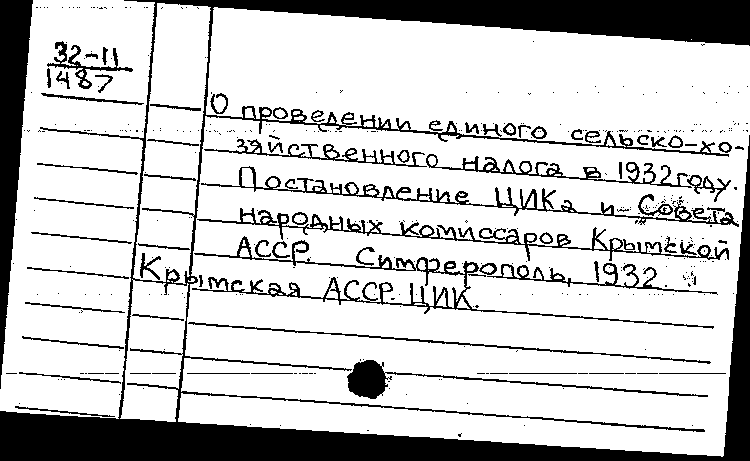 32-11
1487
О проведении единого сельско-хо-
зяйственного налога в 1932 году.
Постановление ЦИКа и Совета
народных комиссаров Крымской
АССР. Симферополь, 1932.
Крымская АССР. ЦИК.